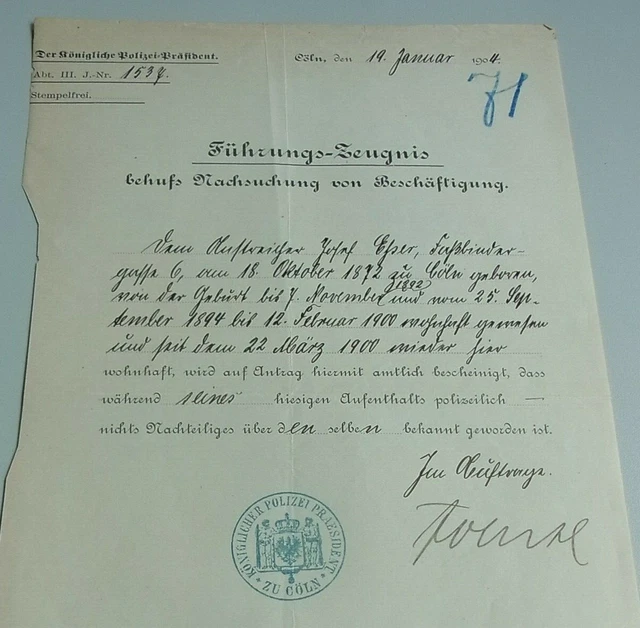 Der Königliche Polizei-Präsident.
Cöln, den 19. Januar 1904.
Abt. III. J.-Nr. 1537.
Stempelfrei.
71
Führungs-Zeugnis
behufs Nachsuchung von Beschäftigung.
Dem Anstreicher Josef Esser, Faßbinder-
gasse 6, am 18. Oktober 1872 zu Cöln geboren,
von der Geburt bis 7. November 1892 und vom 25. Sep-
tember 1894 bis 12. Februar 1900 wohnhaft gewesen
und seit dem 22 März 1900 wieder hier
wohnhaft, wird auf Antrag hiermit amtlich bescheinigt, dass
während seines hiesigen Aufenthalts polizeilich —
nichts Nachteiliges über den selben bekannt geworden ist.
Im Auftrage.
KÖNIGLICHER POLIZEI PRAESIDENT
* ZU CÖLN *